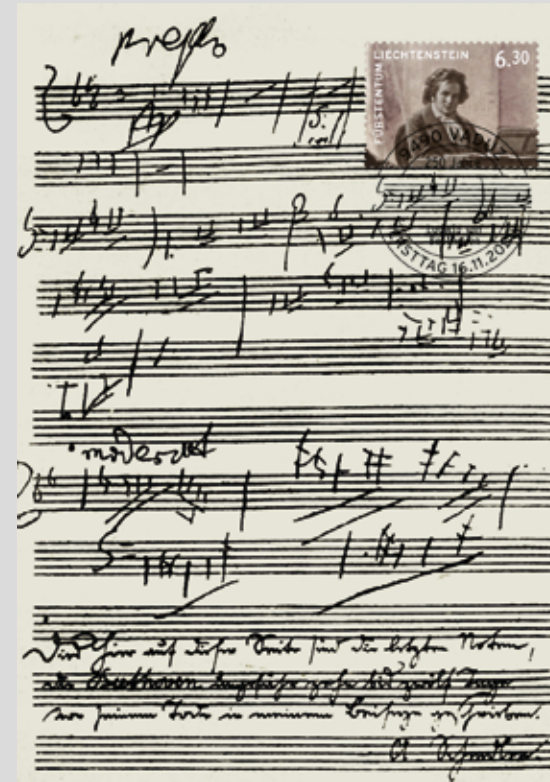 presto
FÜRSTENTUM LIECHTENSTEIN
6.30
9490 VADUZ
250
ERSTTAG 16.11.
moderat
Dies hier auf dieser Seite sind die letzten Noten,
die Beethoven ungefähr zehn bis zwölf Tage
vor seinem Tode in meinem Beiseyn geschrieben.
A. Schindler